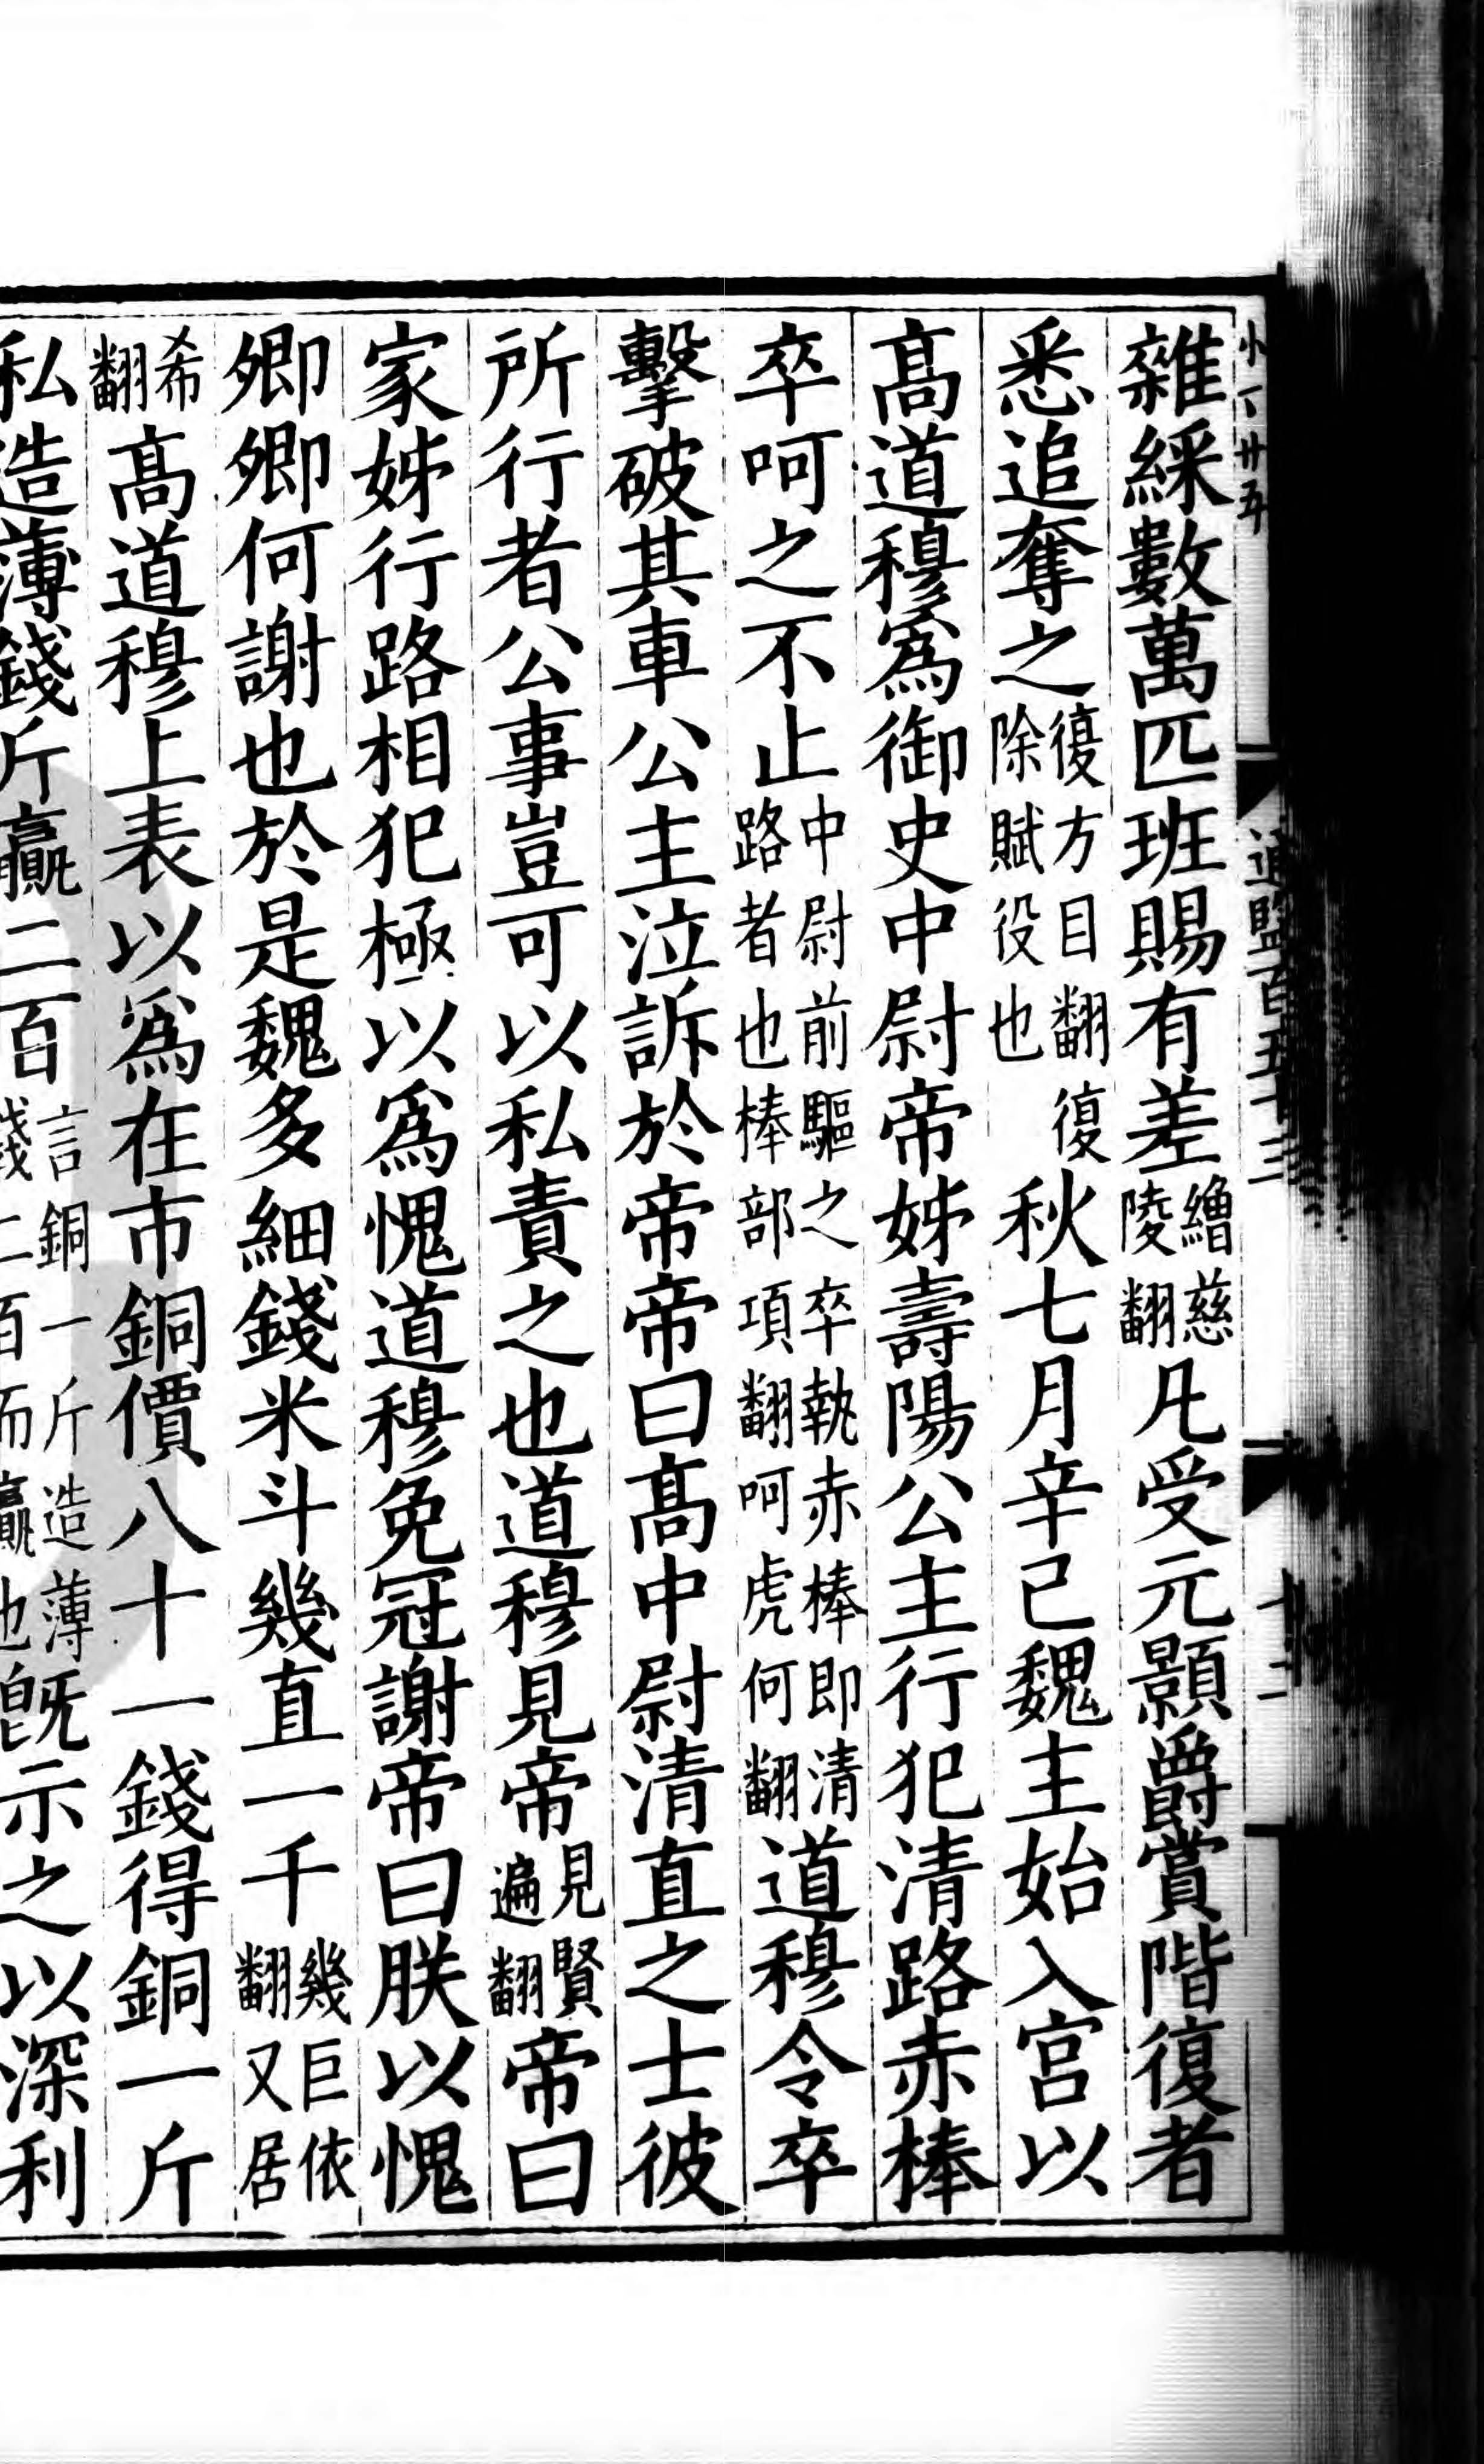 雜綵數萬匹班賜有差繒慈陵翻凡受元顥爵賞階復者
悉追奪之復方目翻復除賦役也秋七月辛巳魏主始入宮以
髙道穆爲御史中尉帝姊壽陽公主行犯清路赤棒
卒呵之不止中尉前驅之卒執赤棒即清路者也棒部項翻呵虎何翻道穆令卒
擊破其車公主泣訴於帝帝曰髙中尉清直之士彼
所行者公事豈可以私責之也道穆見帝見賢遍翻帝曰
家姊行路相犯極以爲愧道穆免冠謝帝曰朕以愧
卿卿何謝也於是魏多細錢米斗幾直一千幾巨依翻又居
希翻髙道穆上表以爲在市銅價八十一錢得銅一斤
私造薄錢斤贏二百言銅一斤造薄錢二百而贏也既示之以深利
通鑑百五十三